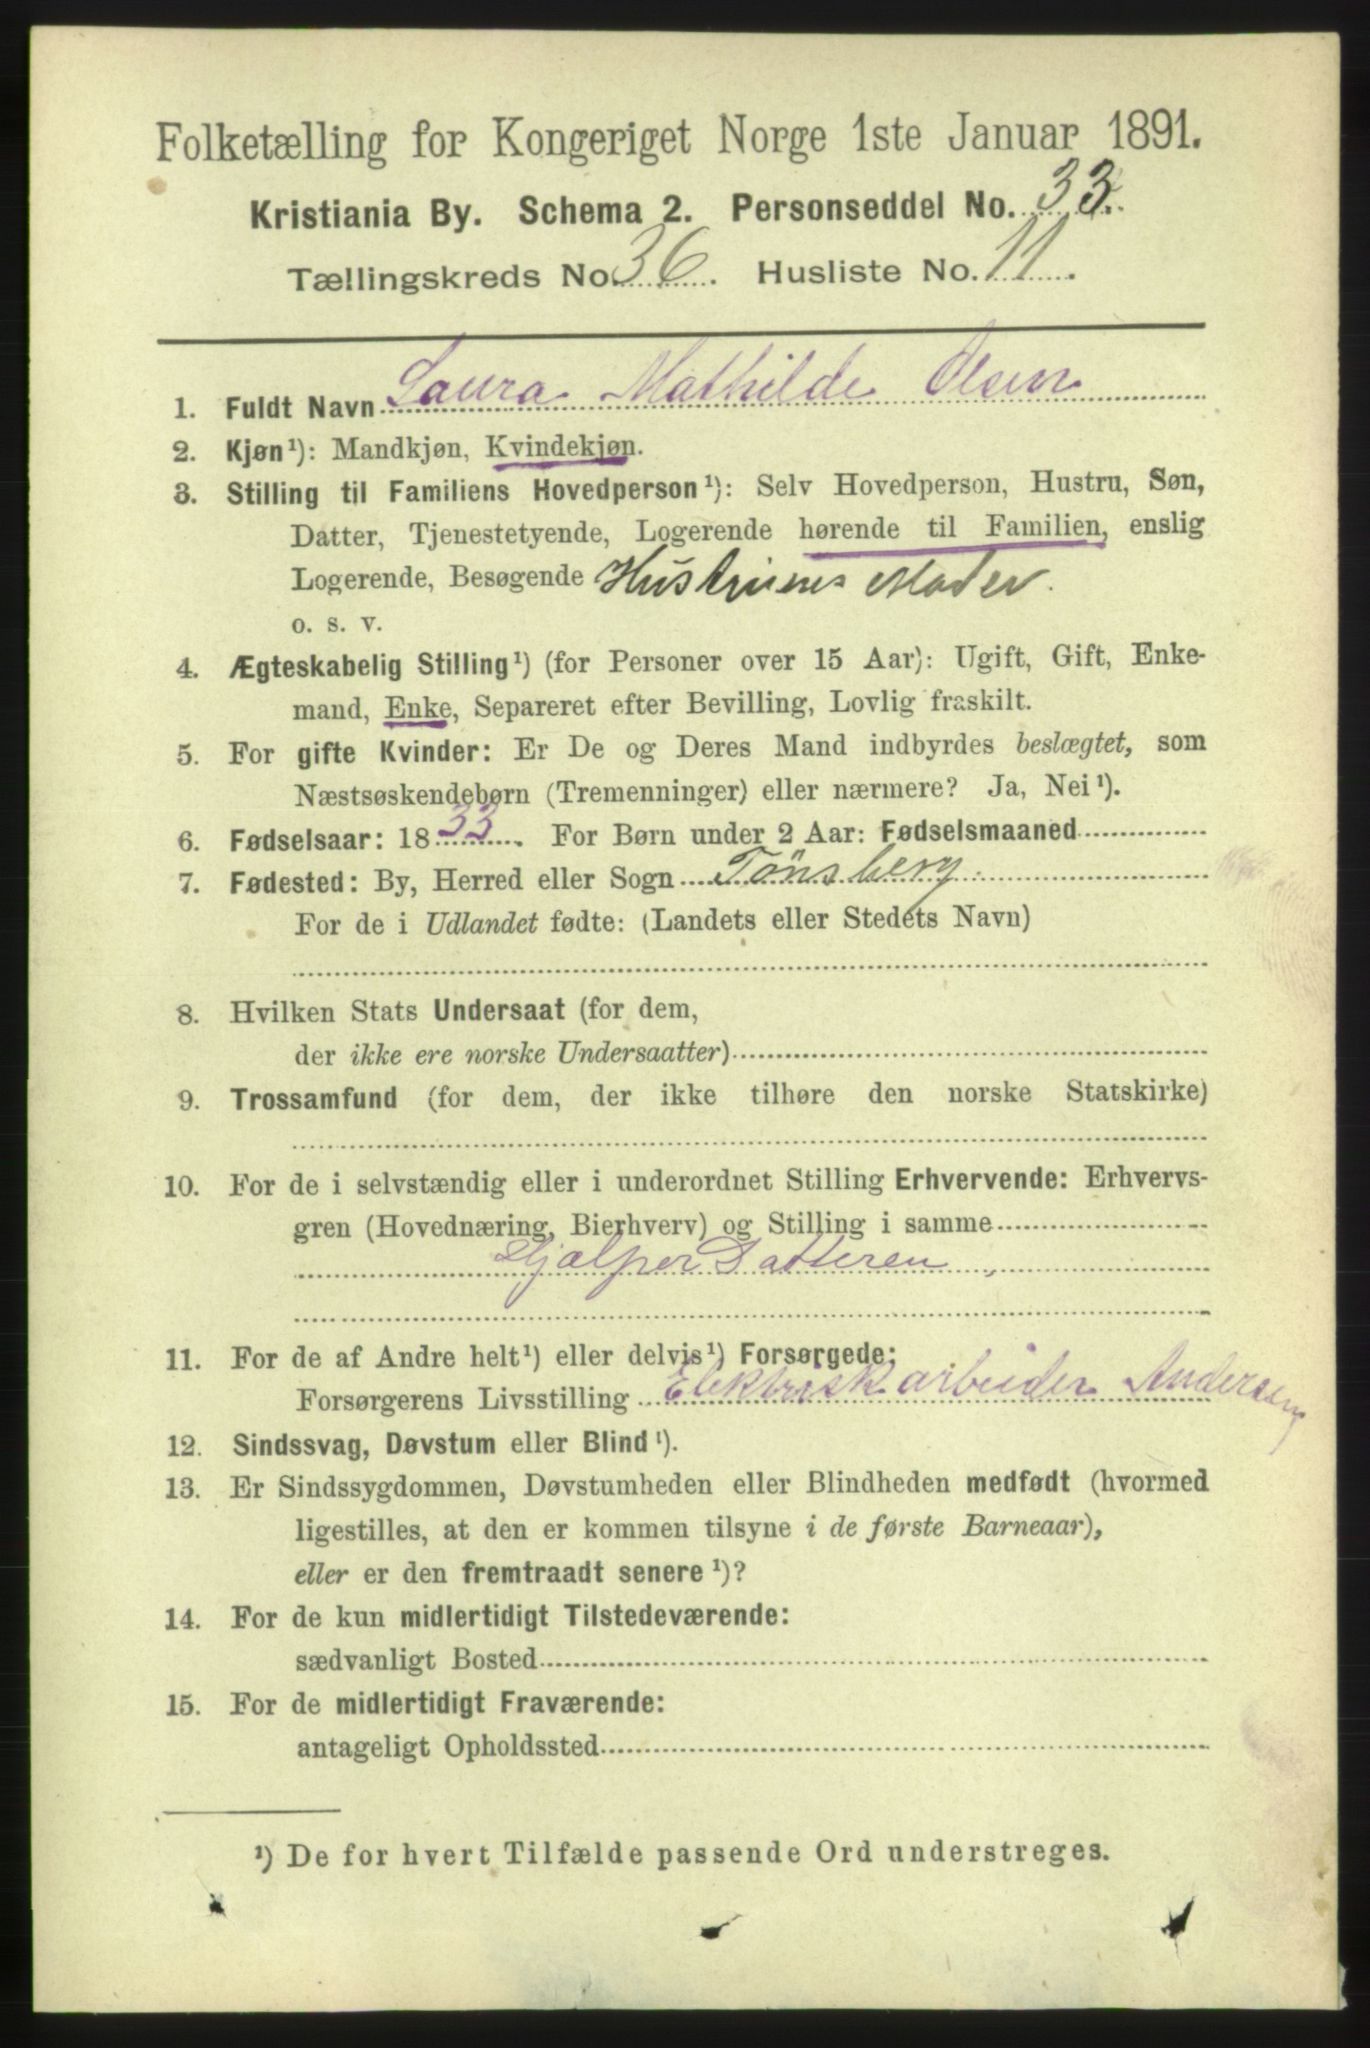 Folketælling for Kongeriget Norge 1ste Januar 1891.
Kristiania By. Schema 2. Personseddel No. 33.
Tællingskreds No. 36. Husliste No. 11.
1. Fuldt Navn Laura Mathilde Olsen
2. Kjøn¹): Mandkjøn, Kvindekjøn.
3. Stilling til Familiens Hovedperson¹): Selv Hovedperson, Hustru, Søn,
Datter, Tjenestetyende, Logerende hørende til Familien, enslig
Logerende, Besøgende Hustruens Moder.
o. s. v.
4. Ægteskabelig Stilling¹) (for Personer over 15 Aar): Ugift, Gift, Enke-
mand, Enke, Separeret efter Bevilling, Lovlig fraskilt.
5. For gifte Kvinder: Er De og Deres Mand indbyrdes beslægtet, som
Næstsøskendebørn (Tremenninger) eller nærmere? Ja, Nei¹).
6. Fødselsaar: 1833. For Børn under 2 Aar: Fødselsmaaned
7. Fødested: By, Herred eller Sogn Tönsberg
For de i Udlandet fødte: (Landets eller Stedets Navn)
8. Hvilken Stats Undersaat (for dem,
der ikke ere norske Undersaatter)
9. Trossamfund (for dem, der ikke tilhøre den norske Statskirke)
10. For de i selvstændig eller i underordnet Stilling Erhvervende: Erhvervs-
gren (Hovednæring, Bierhverv) og Stilling i samme
Hjælper Datteren
11. For de af Andre helt¹) eller delvis¹) Forsørgede:
Forsørgerens Livsstilling Elektriskarbeider Andersen
12. Sindssvag, Døvstum eller Blind¹).
13. Er Sindssygdommen, Døvstumheden eller Blindheden medfødt (hvormed
ligestilles, at den er kommen tilsyne i de første Barneaar),
eller er den fremtraadt senere¹)?
14. For de kun midlertidigt Tilstedeværende:
sædvanligt Bosted
15. For de midlertidigt Fraværende:
antageligt Opholdssted
¹) De for hvert Tilfælde passende Ord understreges.